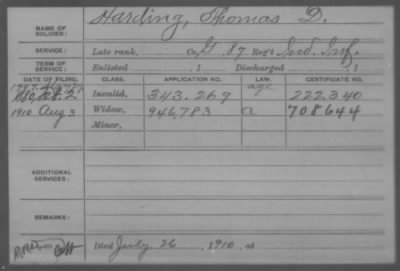 NAME OF SOLDIER: Harding, Thomas D.
SERVICE: Late rank, Co. G, 87 Reg't Ind. Inf.
TERM OF SERVICE: Enlisted , 1 Discharged , 1
DATE OF FILING. CLASS. APPLICATION NO. LAW. CERTIFICATE NO.
age
Invalid, 343.269 222.340
1910 Aug 3 Widow, 946,783 a 708644
Minor,
ADDITIONAL SERVICES:
REMARKS:
Died July 26, 1910, at